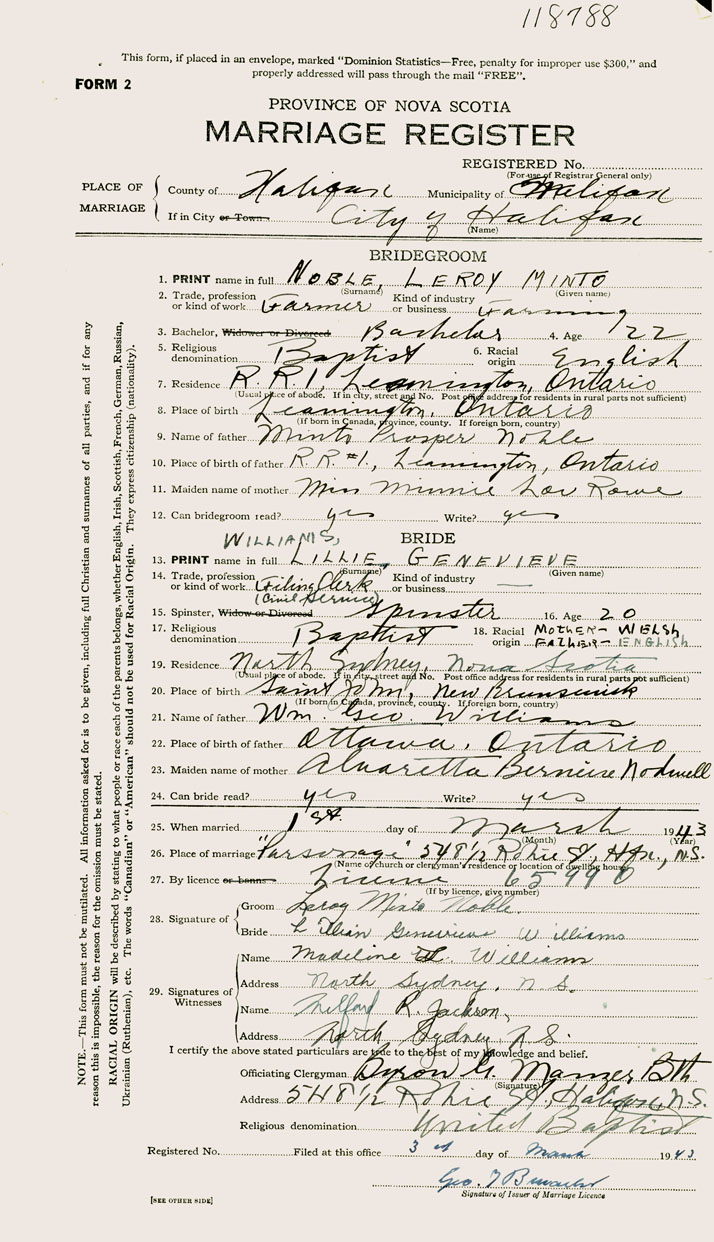 118788
This form, if placed in an envelope, marked "Dominion Statistics—Free, penalty for improper use $300," and
properly addressed will pass through the mail "FREE".
FORM 2
PROVINCE OF NOVA SCOTIA
MARRIAGE REGISTER
REGISTERED No.
(For use of Registrar General only)
PLACE OF MARRIAGE
County of Halifax Municipality of Halifax
If in City or Town City of Halifax
(Name)
BRIDEGROOM
1. PRINT name in full NOBLE, LEROY MINTO
(Surname) (Given name)
2. Trade, profession or kind of work Farmer Kind of industry or business Farming
3. Bachelor, Widower or Divorced Bachelor 4. Age 22
5. Religious denomination Baptist 6. Racial origin English
7. Residence R.R.1, Leamington, Ontario
(Usual place of abode. If in city, street and No. Post office address for residents in rural parts not sufficient)
8. Place of birth Leamington, Ontario
(If born in Canada, province, county. If foreign born, country)
9. Name of father Minto Prosper Noble
10. Place of birth of father R.R. #1., Leamington, Ontario
11. Maiden name of mother Miss Minnie Lov Rowe
12. Can bridegroom read? yes Write? yes
BRIDE
WILLIAMS,
13. PRINT name in full LILLIE, GENEVIEVE
(Surname) (Given name)
14. Trade, profession or kind of work Filing Clerk Kind of industry or business —
(Civil Service)
15. Spinster, Widow or Divorced Spinster 16. Age 20
17. Religious denomination Baptist 18. Racial origin MOTHER- WELSH
FATHER- ENGLISH
19. Residence North Sydney, Nova Scotia
(Usual place of abode. If in city, street and No. Post office address for residents in rural parts not sufficient)
20. Place of birth Saint John, New Brunswick
(If born in Canada, province, county. If foreign born, country)
21. Name of father Wm. Geo. Williams
22. Place of birth of father Ottawa, Ontario
23. Maiden name of mother Alvaretta Berneise Nodwell
24. Can bride read? yes Write? yes
25. When married 1st. day of March 1943
(Month) (Year)
26. Place of marriage "Parsonage" 548 1/2 Robie St, Hfx., N.S.
(Name of church or clergyman's residence or location of dwelling house)
27. By licence or banns License 65990
(If by licence, give number)
28. Signature of
Groom Leroy Minto Noble.
Bride Lillian Genevieve Williams
29. Signatures of Witnesses
Name Madeline Williams
Address North Sydney, N.S.
Name Milford R. Jackson,
Address North Sydney N.S.
I certify the above stated particulars are true to the best of my knowledge and belief.
Officiating Clergyman Byron G. Manzer, BTh
(Signature)
Address 548 1/2 Robie St, Halifax, N.S.
Religious denomination United Baptist
Registered No. Filed at this office 3rd day of March 1943
Geo.
Signature of Issuer of Marriage Licence
[SEE OTHER SIDE]
NOTE.—This form must not be mutilated. All information asked for is to be given, including full Christian and surnames of all parties, and if for any
reason this is impossible, the reason for the omission must be stated.
RACIAL ORIGIN will be described by stating to what people or race each of the parents belongs, whether English, Irish, Scottish, French, German, Russian,
Ukrainian (Ruthenian), etc. The words "Canadian" or "American" should not be used for Racial Origin. They express citizenship (nationality).